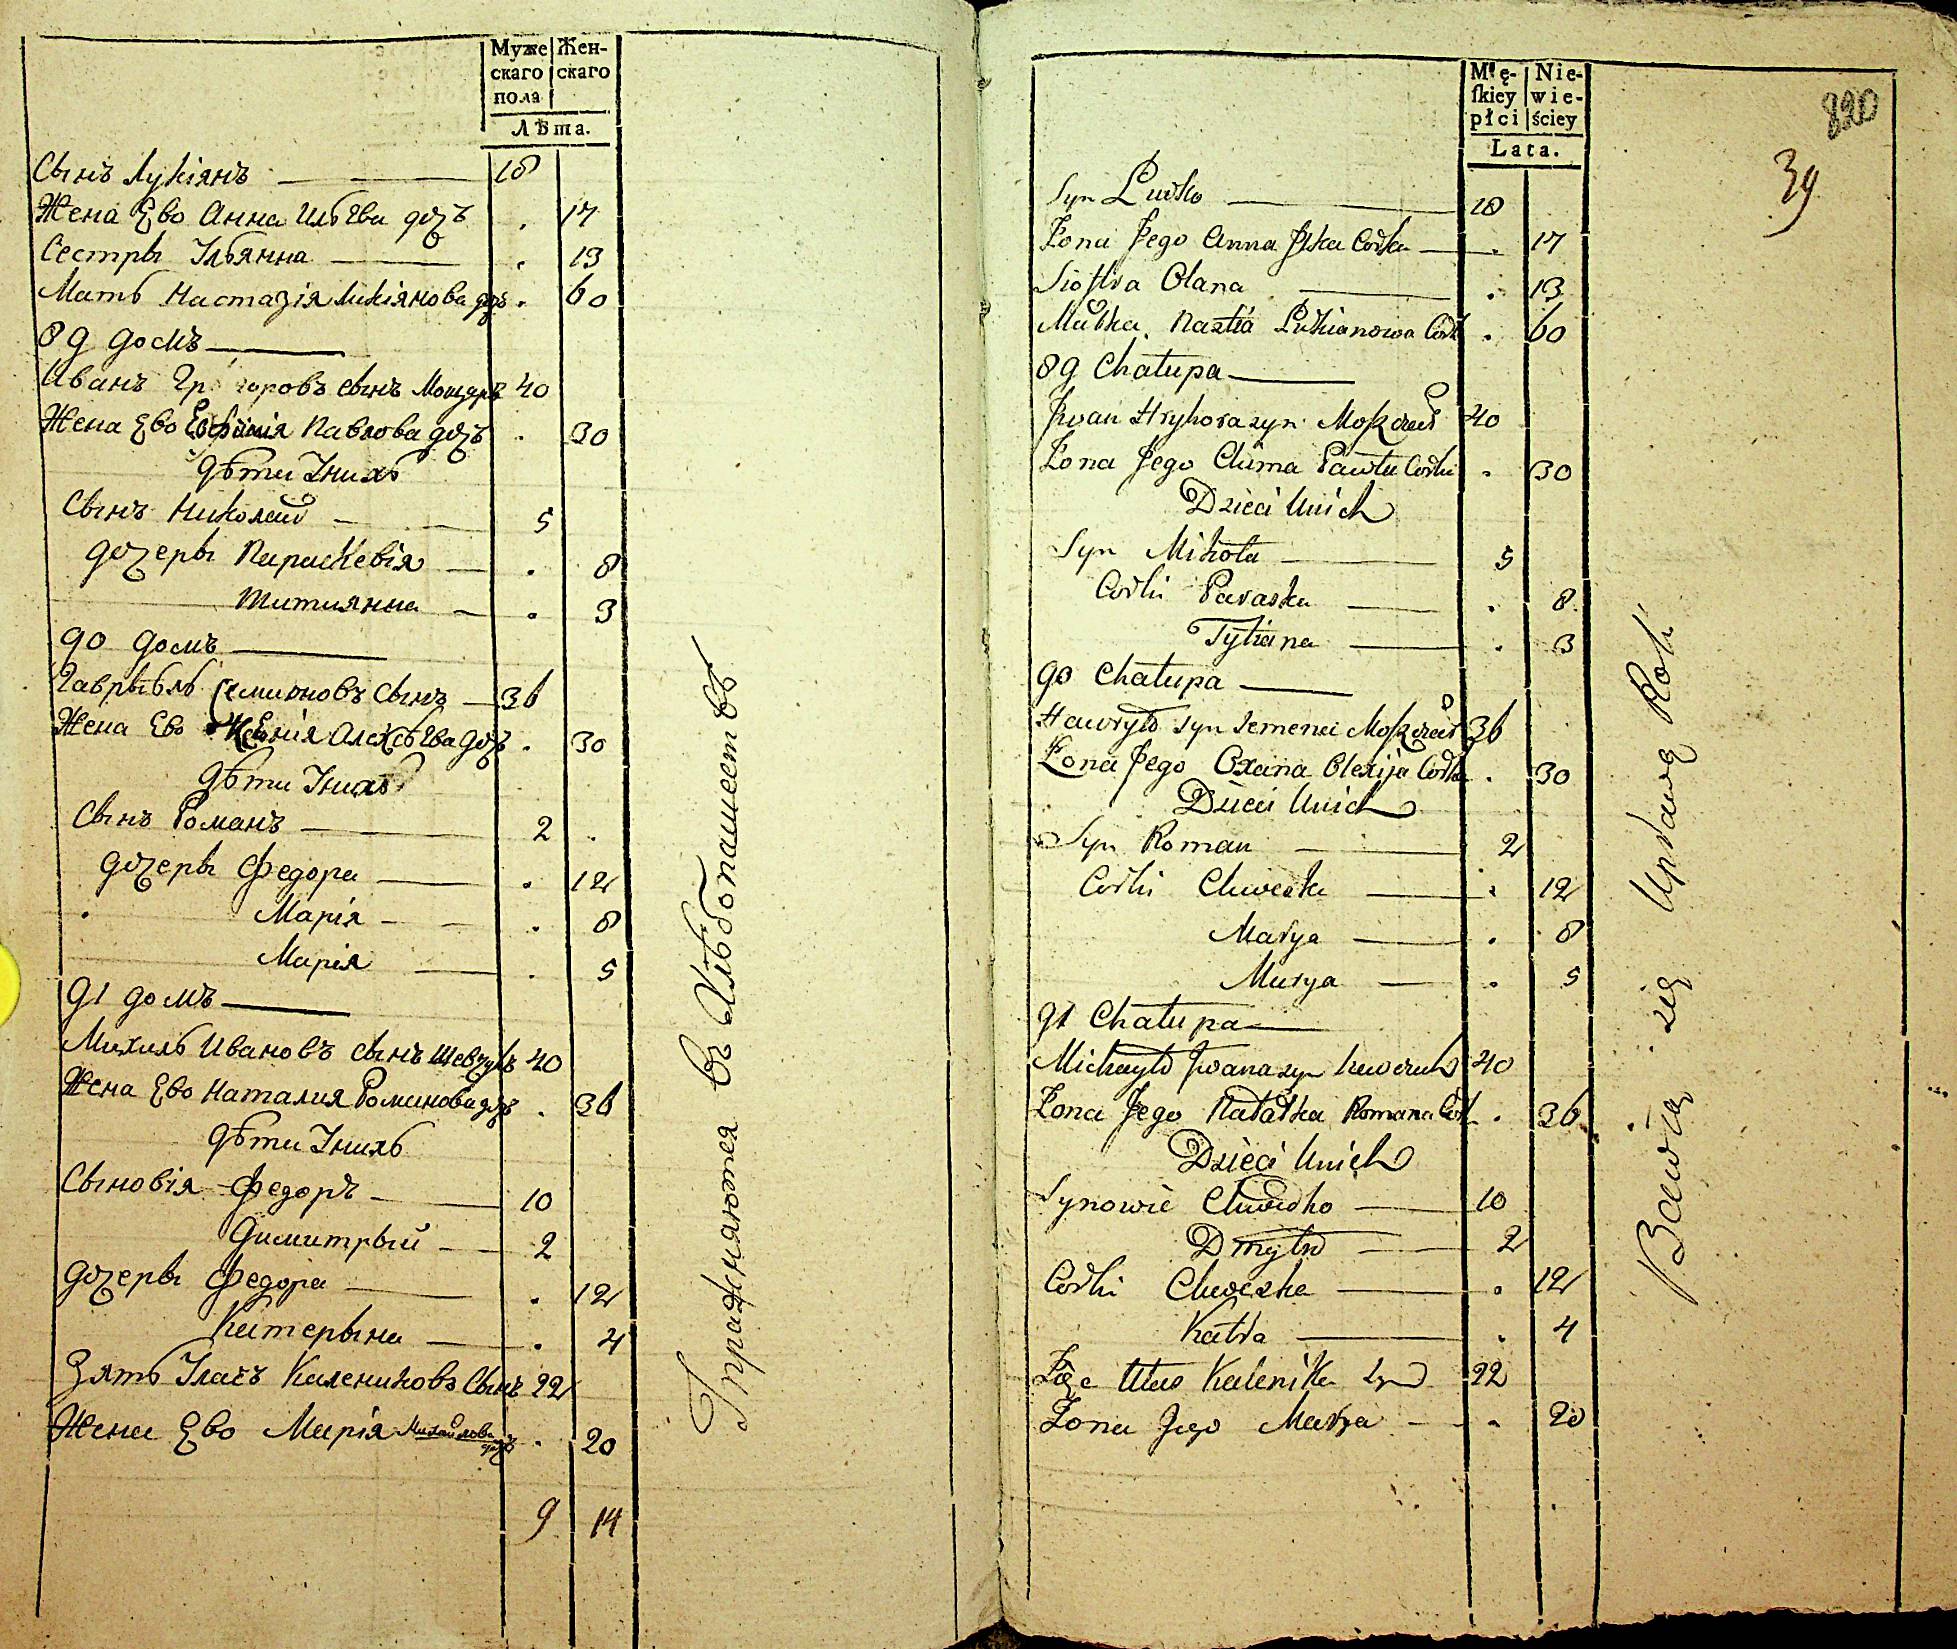 Муже Жен-
скаго скаго
пола
Лѣта.
Сынъ Лукіянъ 18
Жена Ево Анна Ильева дочъ . 17
Сестры Ульянна . 13
Мать Настазія Лукіянова дочъ . 60
89 домъ
Иванъ Григоровъ сынъ 40
Жена Ево Павлова дочъ . 30
дѣти Унихъ
Сынъ Николай 5
дочеры Параскевія . 8
Татиянна . 3
90 домъ
Гаврыблъ Семионовъ Сынъ 36
Жена Ево Ксенія Олексѣева дочъ . 30
дѣти Унихъ
Сынъ Романъ 2 .
дочеры Федора . 12
Марія . 8
Марія . 5
91 домъ
Михаль Ивановъ сынъ Шевчукъ 40
Жена Ево Наталия Романова дочъ . 36
дѣти Унихъ
Сыновія Федоръ 10
Димитрый 2
дочеры Федора . 12
Катерына . 4
Зять Улась Калениковъ Сынъ 22
Жена Ево Марія Михайлова дочъ . 20
9 14
Упражняются въ Хлѣбопашествѣ
Męſ- Nie-
ſkiey wie-
płci ściey
Lata.
820
39
Syn Łucko 18
Żona Jego Anna Ilka Corka . 17
Siostra Olana . 13
Matka Nastia Łukianowa Cork . 60
89 Chałupa
Iwan Hryhora syn 40
Żona Jego Chima Pawła Corka . 30
Dzieci Unich
Syn Mikoła 5
Corki Paraska . 8
Tytiana . 3
90 Chałupa
Hawryło syn Semena 36
Żona Jego Oxana Olexija Corka . 30
Dzieci Unich
Syn Roman 2
Corki Chweska . 12
Marya . 8
Marya . 5
91 Chałupa
Michayło Iwana syn 40
Żona Jego Natałka Romana Cork . 36
Dzieci Unich
Synowie Chwedko 10
Dmytro 2
Corki Chweska . 12
Katra . 4
Zięc Ułas Kalenika Syn 22
Żona Jego Marya . 20
Bawią się Uprawą Roli